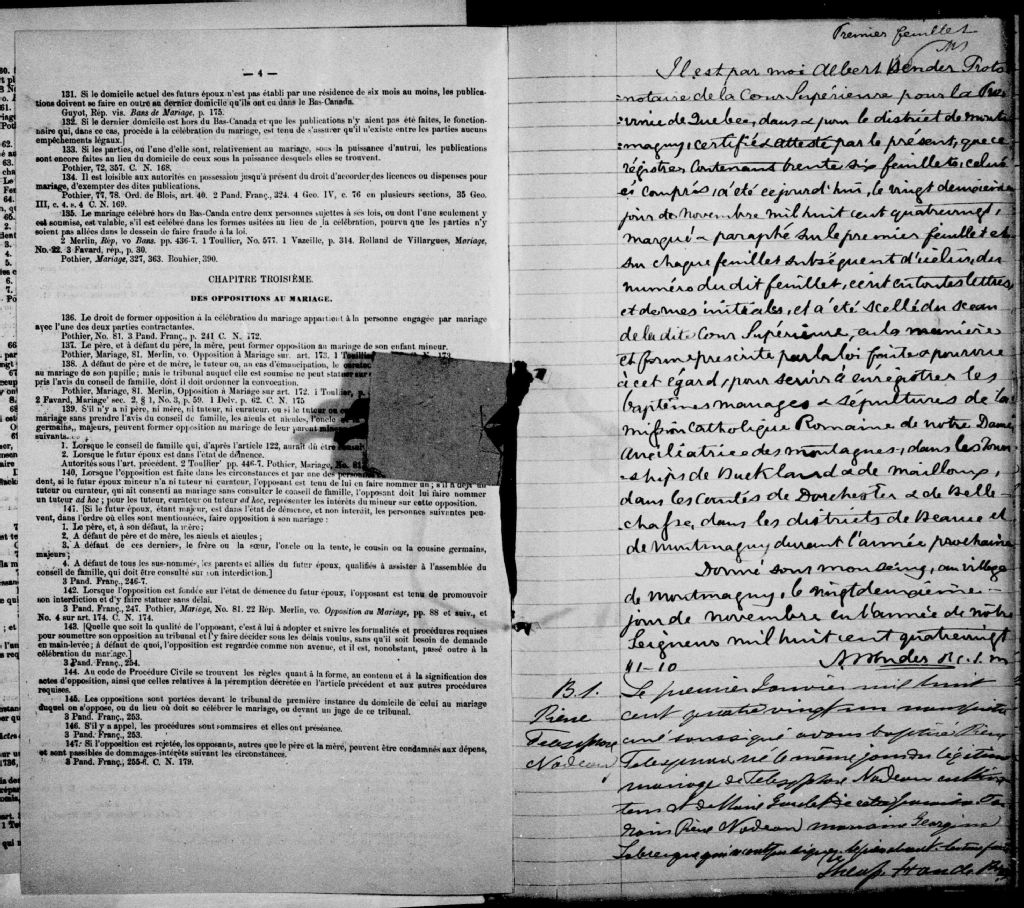 — 4 —
131. Si le domicile actuel des futurs époux n'est pas établi par une résidence de six mois au moins, les publica-
tions doivent se faire en outre au dernier domicile qu'ils ont eu dans le Bas-Canada.
Guyot, Rép. vis. Bans de Mariage, p. 175.
132. Si leur dernier domicile est hors du Bas-Canada et que les publications n'y aient pas été faites, le fonction-
naire qui, dans ce cas, procède à la célébration du mariage, est tenu de s'assurer qu'il n'existe entre les parties aucuns
empêchements légaux.]
133. Si les parties, ou l'une d'elle sont, relativement au mariage, sous la puissance d'autrui, les publications
sont encore faites au lieu du domicile de ceux sous la puissance desquels elles se trouvent.
Pothier, 72, 357. C. N. 168.
134. Il est loisible aux autorités en possession jusqu'à présent du droit d'accorder des licences ou dispenses pour
mariage, d'exempter des dites publications.
Pothier, 77, 78. Ord. de Blois, art. 40. 2 Pand. Franç., 324. 4 Geo. IV, c. 76 en plusieurs sections, 35 Geo.
III, c. 4. s. 4 C. N. 169.
135. Le mariage célébré hors du Bas-Canda entre deux personnes sujettes à ses lois, ou dont l'une seulement y
est soumise, est valable, s'il est célébré dans les formes usitées au lieu de la célébration, pourvu que les parties n'y
soient pas allées dans le dessein de faire fraude à la loi.
2 Merlin, Rép, vo Bans. pp. 436-7. 1 Toullier, No. 577. 1 Vazeille, p. 314. Rolland de Villargues, Mariage,
No. 22. 3 Favard, rép., p. 30.
Pothier, Mariage, 327, 363. Bouhier, 390.
CHAPITRE TROISIÈME.
DES OPPOSITIONS AU MARIAGE.
136. Le droit de former opposition à la célébration du mariage appartient à la personne engagée par mariage
avec l'une des deux parties contractantes.
Pothier, No. 81. 3 Pand. Franç., p. 241 C. N. 172.
137. Le père, et à défaut du père, la mère, peut former opposition au mariage de son enfant mineur.
Pothier, Mariage, 81. Merlin, vo. Opposition à Mariage sur. art. 173. 1 Toullier
138. A défaut de père et de mère, le tuteur ou, an cas d'émancipation, le
au mariage de son pupile; mais le tribunal auquel elle est soumise ne peut statuer sur
pris l'avis du conseil de famille, dont il doit ordonner la convocation.
Pothier, Mariage, 81. Merlin, Opposition à Mariage sur art. 172. 1 Toullier, p.
2 Favard, Mariage' sec. 2, § 1, No. 3, p. 59. 1 Delv. p. 62. C. N. 175
139. S'il n'y a ni père, ni mère, ni tuteur, ni curateur, ou si le tuteur ou
mariage sans prendre l'avis du conseil de famille, les aïeuls et aïeules, l'oncle
germains, majeurs, peuvent former opposition au mariage de leur parent mineur
suivants.
1. Lorsque le conseil de famille qui, d'après l'article 122, aurait dû être
2. Lorsque le futur époux est dans l'état de démence.
Autorités sous l'art. précédent. 2 Toullier' pp. 446-7. Pothier, Mariage, No. 81.
140. Lorsque l'opposition est faite dans les circonstances et par une des
dent, si le futur époux mineur n'a ni tuteur ni curateur, l'opposant est tenu de lui en faire nommer un; s'il a déjà un
tuteur ou curateur, qui ait consenti au mariage sans consulter le conseil de famille, l'opposant doit lui faire nommer
un tuteur ad hoc; pour les tuteur, curateur ou tuteur ad hoc, représenter les intérêts du mineur sur cette opposition.
141. [Si le futur époux, étant majeur, est dans l'état de démence, et non interdit, les personnes suivantes peu-
vent, dans l'ordre où elles sont mentionnées, faire opposition à son mariage:
1. Le père, et, à son défaut, la mère;
2. A défaut de père et de mère, les aieuls et aieules;
3. A défaut de ces derniers, le frère ou la sœur, l'oncle ou la tente, le cousin ou la cousine germains,
majeurs;
4. A défaut de tous les sus-nommés, les parents et alliés du futur époux, qualifiés à assister à l'assemblée du
conseil de famille, qui doit être consulté sur son interdiction.]
3 Pand. Franç., 246-7.
142. Lorsque l'opposition est fondée sur l'état de démence du futur époux, l'opposant est tenu de promouvoir
son interdiction et d'y faire statuer sans délai.
3 Pand. Franç., 247. Pothier, Mariage, No. 81. 22 Rép. Merlin, vo. Opposition au Mariage, pp. 88 et suiv., et
No. 4 sur art. 174. C. N. 174.
143. [Quelle que soit la qualité de l'opposant, c'est à lui à adopter et suivre les formalités et procédures requises
pour soumettre son opposition au tribunal et l'y faire décider sous les délais voulus, sans qu'il soit besoin de demande
en main-levée; à défaut de quoi, l'opposition est regardée comme non avenue, et il est, nonobstant, passé outre à la
célébration du mariage.]
3 Pand. Franç., 254.
144. Au code de Procédure Civile se trouvent les règles quant à la forme, au contenu et à la signification des
actes d'opposition, ainsi que celles relatives à la péremption décrétée en l'article précédent et aux autres procédures
requises.
145. Les oppositions sont portées devant le tribunal de première instance du domicile de celui au mariage
duquel on s'oppose, ou du lieu où doit se célébrer le mariage, ou devant un juge de ce tribunal.
3 Pand. Franç., 253.
146. S'il y a appel, les procédures sont sommaires et elles ont préséance.
3 Pand. Franç., 253.
147. Si l'opposition est rejetée, les opposants, autres que le père et la mère, peuvent être condamnés aux dépens,
et sont passibles de dommages-intérêts suivant les circonstances.
3 Pand. Franç., 255-6. C. N. 179.
Premier feuillet
Il est par moi Albert Bender Proto
notaire de la Cour Supérieure pour la Pro
vince de Quebec, dans & pour le district de Mont
magny, certifié & attesté par le présent, que ce
régistre contenant trente six feuillets, celui
ci compris, a été ce jourd'hui, le vingt deuxième
jour de novembre mil huit cent quatrevingt,
marqué & paraphé sur le premier feuillet et
sur chaque feuillet subséquent d'icelui, du
numéro du dit feuillet, écrit en toutes lettres,
et de mes initiales, et a été scellé du sceau
de la dite Cour Supérieure, en la manière
et forme prescrite par la loi faite & pourvue
à cet égard, pour servir à enrégistrer les
baptêmes mariages & sépultures de la
mission Catholique Romaine de notre Dame
Auxiliatrice des montagnes, dans les Town
ships de Buckland & de Mailloux,
dans les Comtés de Dorchester & de Belle-
chasse, dans les districts de Beauce et
de Montmagny durant l'année prochaine
Donné sous mon seing, au village
de Montmagny, le vingt deuxième
jour de novembre en l'année de notre
Seigneur mil huit cent quatrevingt
$1-10
A Bender P.C.S.M
B. 1.
Pierre
Telesphore
Nadeau
Le premier Janvier mil huit
cent quatre vingt un nous prêtre
curé soussigné avons baptisé Pierre
Telesphore né le même jour du légitime
mariage de Telesphore Nadeau cultiva
teur & de Marie Goulet de cette paroisse. Par
rain Pierre Nadeau marraine Georgina
Labrecque qui n'ont pu signer.